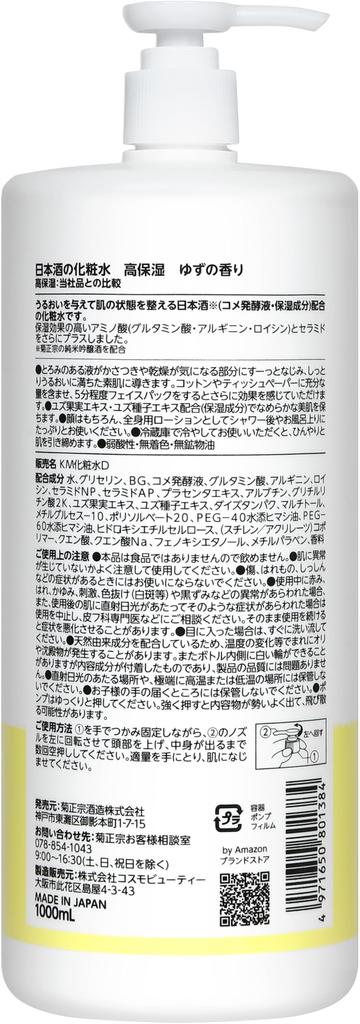 日本酒の化粧水 高保湿 ゆずの香り
高保湿:当社品との比較
うるおいを与えて肌の状態を整える日本酒※(コメ発酵液・保湿成分)配合
の化粧水です。
保湿効果の高いアミノ酸(グルタミン酸・アルギニン・ロイシン)とセラミド
をさらにプラスしました。
※菊正宗の純米吟醸酒を配合
●とろみのある液がかさつきや乾燥が気になる部分にすーっとなじみ、しっと
りうるおいに満ちた素肌に導きます。コットンやティッシュペーパーに充分な
量を含ませ、5分程度フェイスパックをするとさらに効果を感じていただけま
す。●ユズ果実エキス・ユズ種子エキス配合(保湿成分)でなめらかな美肌を保
ちます。●顔はもちろん、全身用ローションとしてシャワー後やお風呂上りに
たっぷりとお使いください。●冷蔵庫で冷やしてお使いいただくと、ひんやりと
肌を引き締めます。●弱酸性・無着色・無鉱物油
販売名 KM化粧水D
配合成分 水、グリセリン、BG、コメ発酵液、グルタミン酸、アルギニン、ロイ
シン、セラミドNP、セラミドAP、プラセンタエキス、アルブチン、グリチルリ
チン酸2K、ユズ果実エキス、ユズ種子エキス、ダイズタンパク、マルトール、
メチルグルセス-10、ポリソルベート20、PEG-40水添ヒマシ油、PEG-
60水添ヒマシ油、ヒドロキシエチルセルロース、(スチレン/アクリレーツ)コポ
リマー、クエン酸、クエン酸Na、フェノキシエタノール、メチルパラベン、香料
ご使用上の注意 ●本品は食品ではありませんので飲めません。●肌に異常
が生じていないかよく注意して使用してください。●傷、はれもの、しっしん
などの症状があるときにはお使いにならないでください。●使用中に赤み、
はれ、かゆみ、刺激、色抜け(白斑等)や黒ずみなどの異常があらわれた場合、
また、使用後の肌に直射日光があたってそのような症状があらわれた場合は
使用を中止し、皮フ科専門医などにご相談ください。そのまま使用を続ける
と症状を悪化させることがあります。●目に入った場合は、すぐに洗い流して
ください。●天然由来成分を配合しているため、温度の変化等でまれにオリ
や沈殿物が発生することがあります。またボトル内側に白い輪ができること
がありますが内容成分が付着したものであり、製品の品質には問題ありませ
ん。●直射日光のあたる場所や、極端に高温または低温の場所には保管しな
いでください。●お子様の手の届くところには保管しないでください。●ポ
ンプはゆっくりと押してください。強く押すと内容物が勢いよく出て、飛び散
る可能性があります。
ご使用方法 ①を手でつかみ固定しながら、②のノズ
ルを左に回転させて頭部を上げ、中身が出るまで
数回空押ししてください。適量を手にとり、肌になじ
ませてください。
② 左へ回す
①
発売元:菊正宗酒造株式会社
神戸市東灘区御影本町1-7-15
お問い合わせ先:菊正宗お客様相談室
078-854-1043
9:00~16:30(土、日、祝日を除く)
製造販売元:株式会社コスモビューティー
大阪市此花区島屋4-3-43
MADE IN JAPAN
1000mL
プラ
容器
ポンプ
フィルム
by Amazon
ブランドストア
4 971650 801384